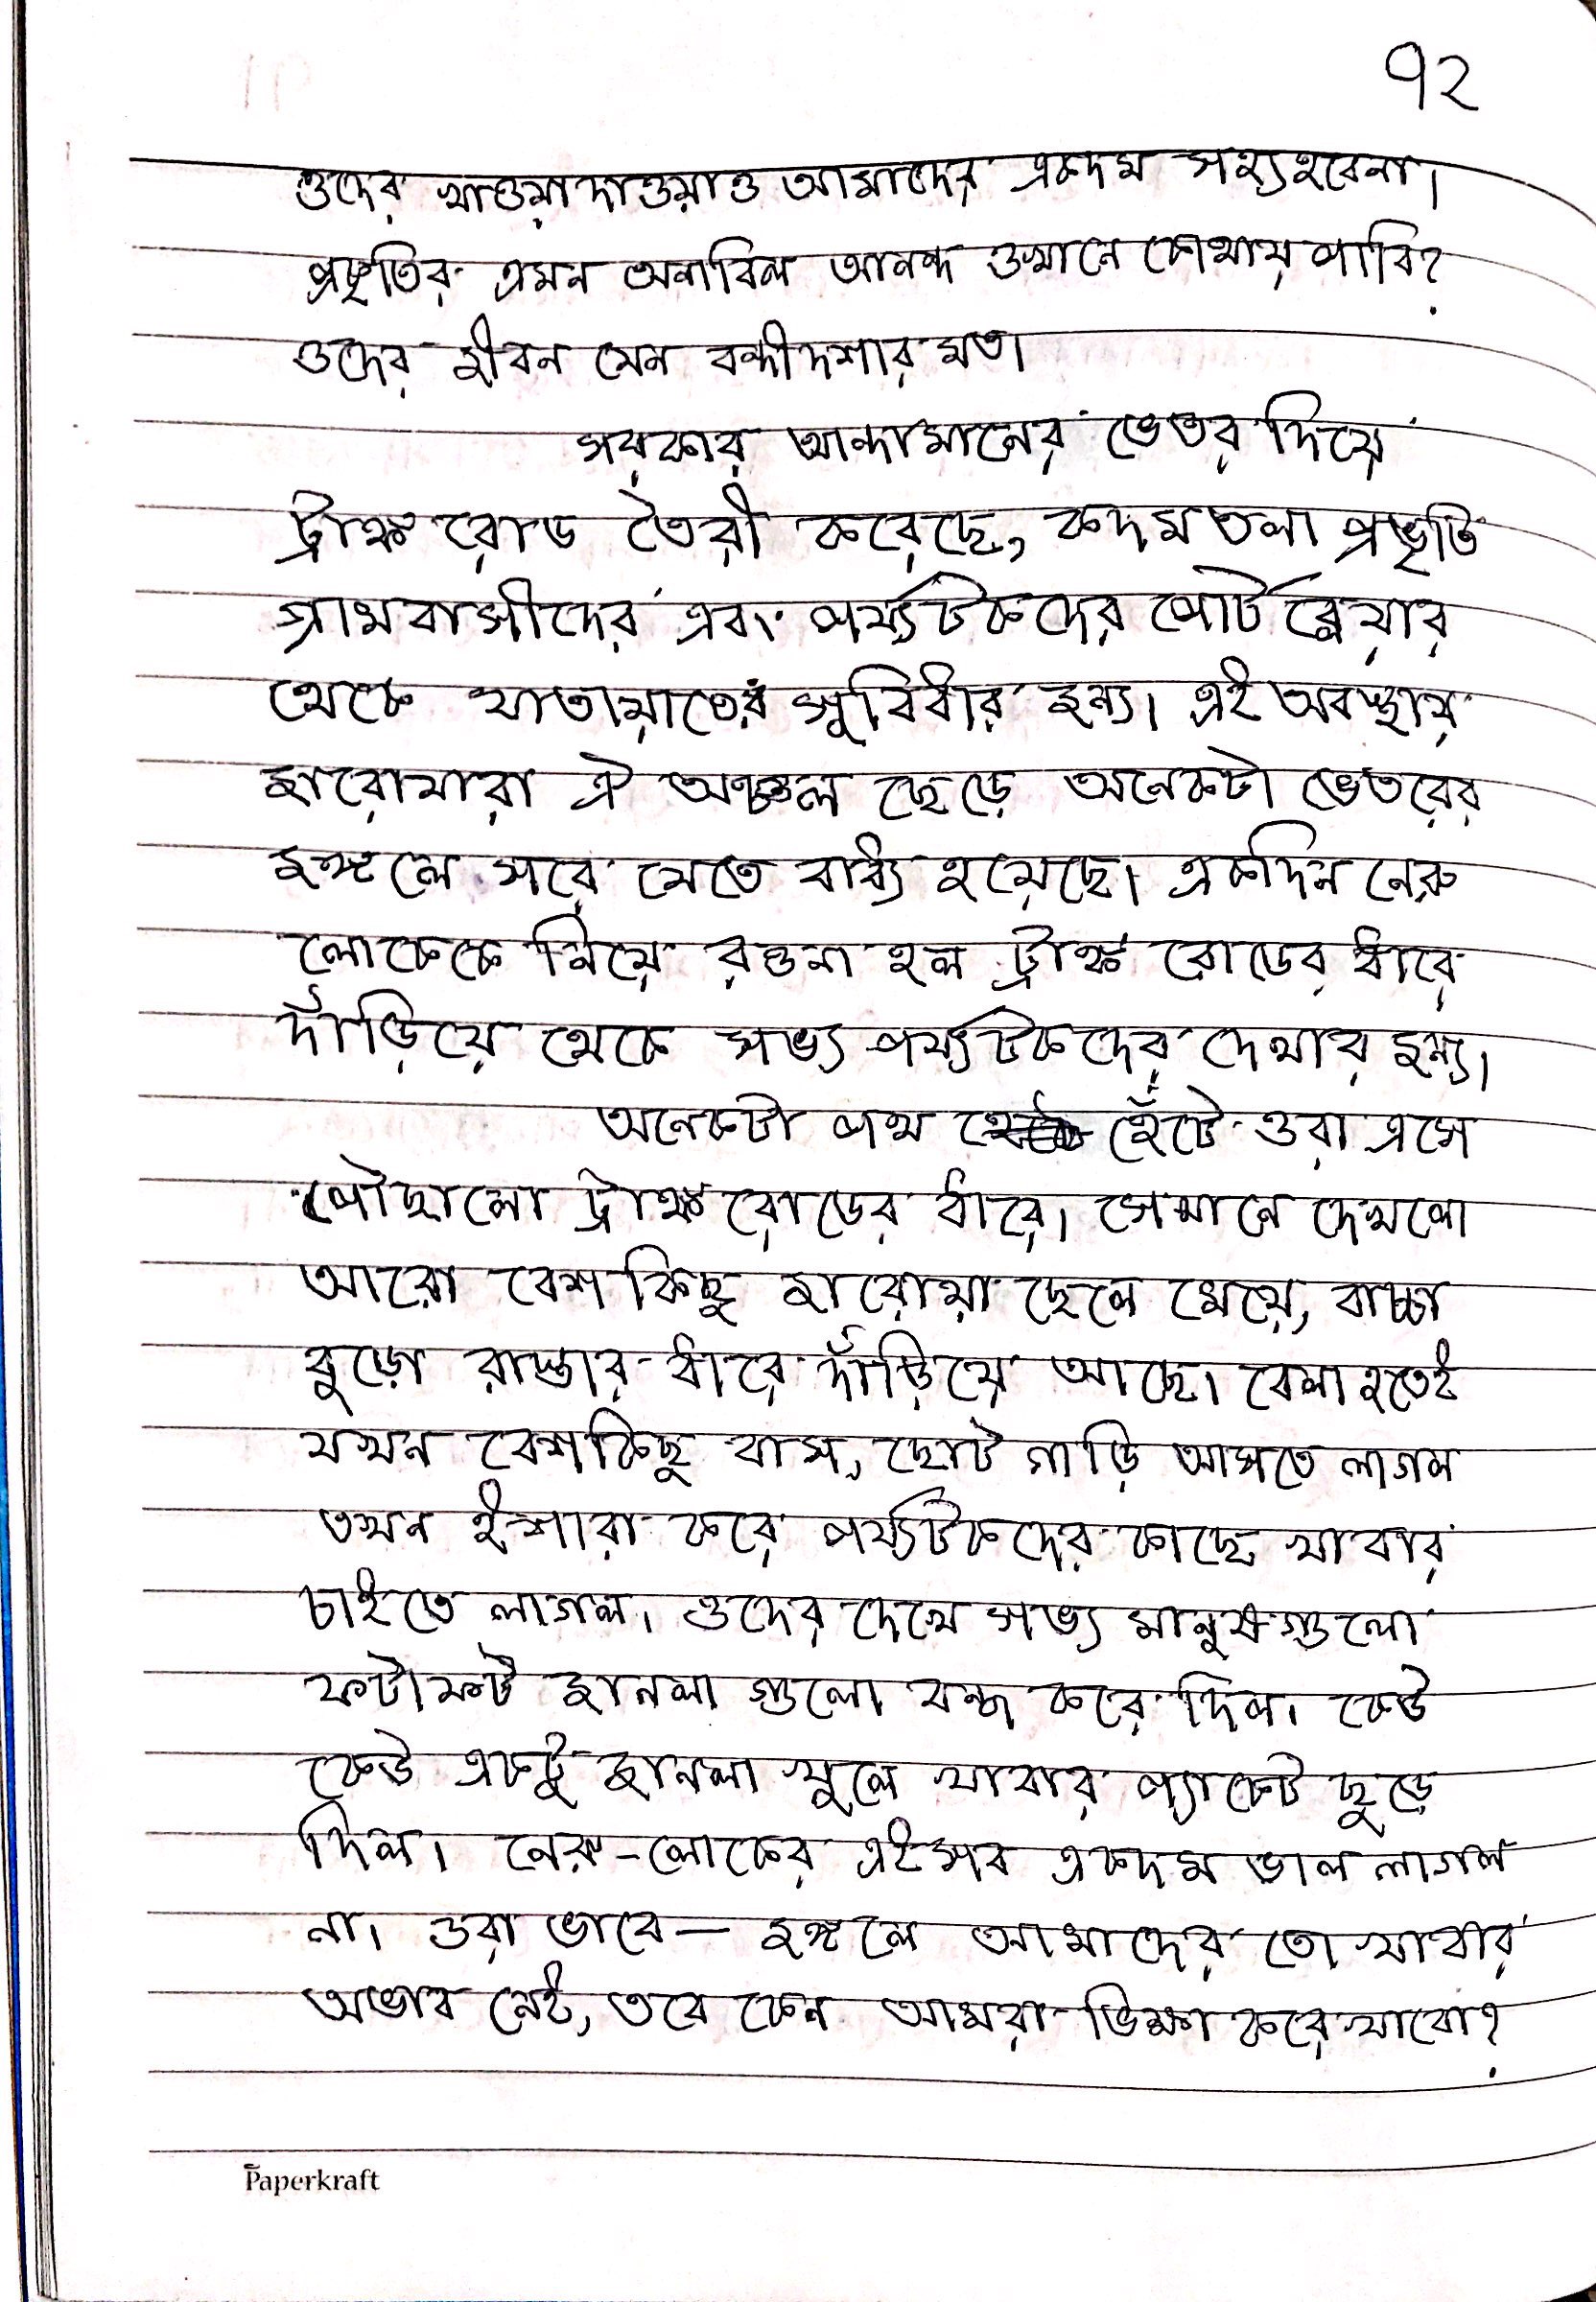 ৭২
ওদের খাওয়াদাওয়াও আমাদের একদম সহ্যহবেনা।
প্রকৃতির এমন অনাবিল আনন্দ ওখানে কোথায় পাবি?
ওদের জীবন যেন বন্দীদশার মত।
সরকার আন্দামানের ভেতর দিয়ে
ট্রাঙ্ক রোড তৈরী করেছে, কদমতলা প্রভৃতি
গ্রামবাসীদের এবং পর্য্যটকদের পোর্ট ব্লেয়ার
থেকে যাতায়াতের সুবিধার জন্য। এই অবস্থায়
জারোয়ারা ঐ অঞ্চল ছেড়ে অনেকটা ভেতরের
জঙ্গলে সরে যেতে বাধ্য হয়েছে। একদিন নেরু
লোকেকে নিয়ে রওনা হল ট্রাঙ্ক রোডের ধারে
দাঁড়িয়ে থেকে সভ্য পর্য্যটকদের দেখার জন্য।
অনেকটা পথ হেঁটে ওরা এসে
পৌছালো ট্রাঙ্ক রোডের ধারে। সেখানে দেখলো
আরো বেশ কিছু জারোয়া ছেলে মেয়ে, বাচ্চা
বুড়ো রাস্তার ধারে দাঁড়িয়ে আছে। বেলা হতেই
যখন বেশকিছু বাস, ছোট গাড়ি আসতে লাগল
তখন ইশারা করে পর্য্যটকদের কাছে খাবার
চাইতে লাগল। ওদের দেখে সভ্য মানুষগুলো
ফটাফট জানলা গুলো বন্ধ করে দিল। কেউ
কেউ একটু জানলা খুলে খাবার প্যাকেট ছুড়ে
দিল। নেরু-লোকের এইসব একদম ভাল লাগল
না। ওরা ভাবে— জঙ্গলে আমাদের তো খাবার
অভাব নেই, তবে কেন আমরা ভিক্ষা করে খাবো?
Paperkraft